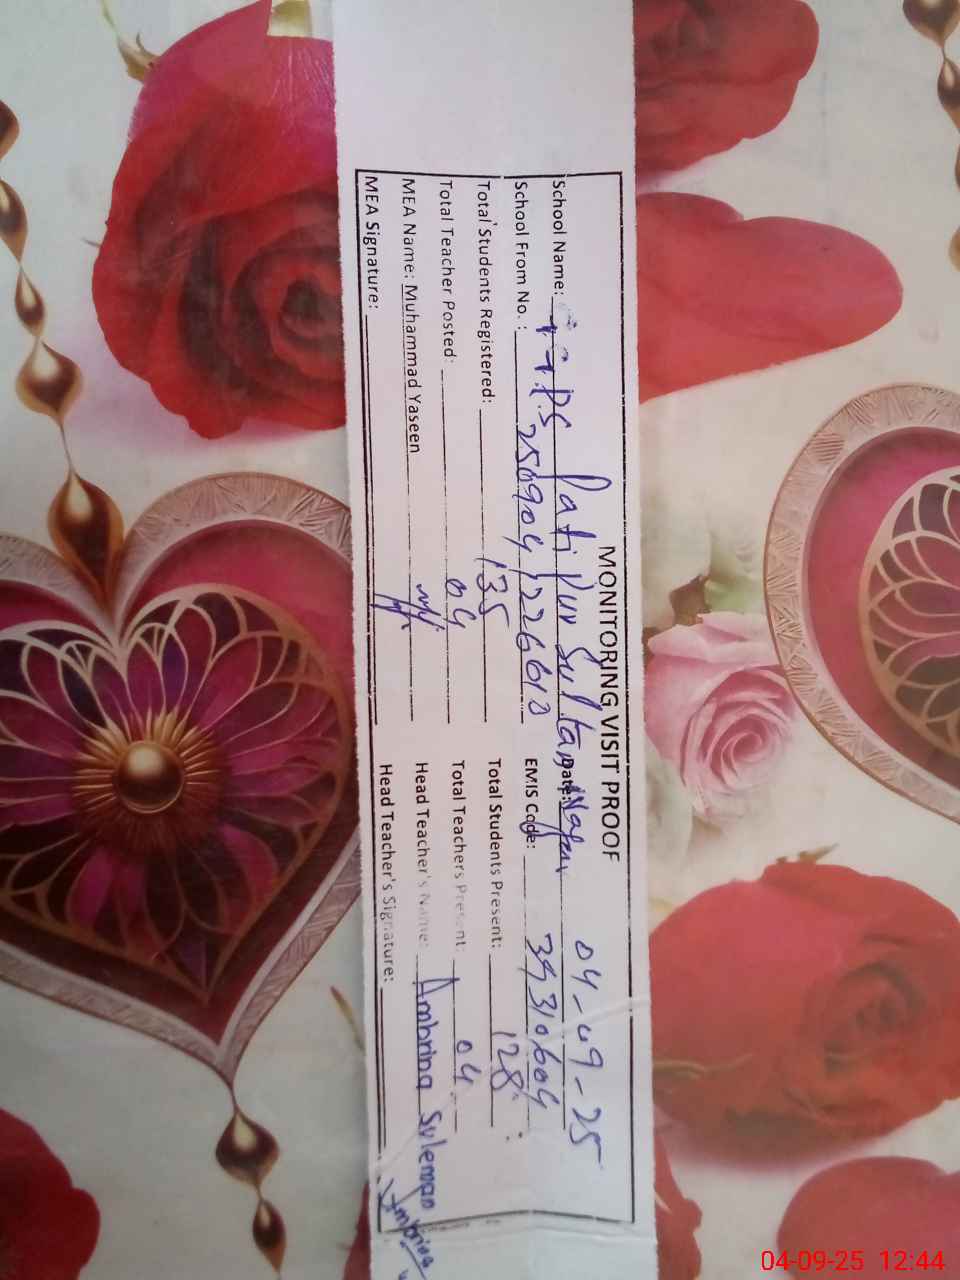 MONITORING VISIT PROOF
School Name: G.G.P.S Pati Pur Sultan Nagar Date: 04-09-25
School From No. : EMIS Code: 39310604
Total Students Registered: 135 Total Students Present: 128
Total Teacher Posted: 04 Total Teachers Present: 04
MEA Name: Muhammad Yaseen Head Teacher's Name: Ambrina Suleman
MEA Signature: Head Teacher's Signature: Ambrina
04-09-25 12:44